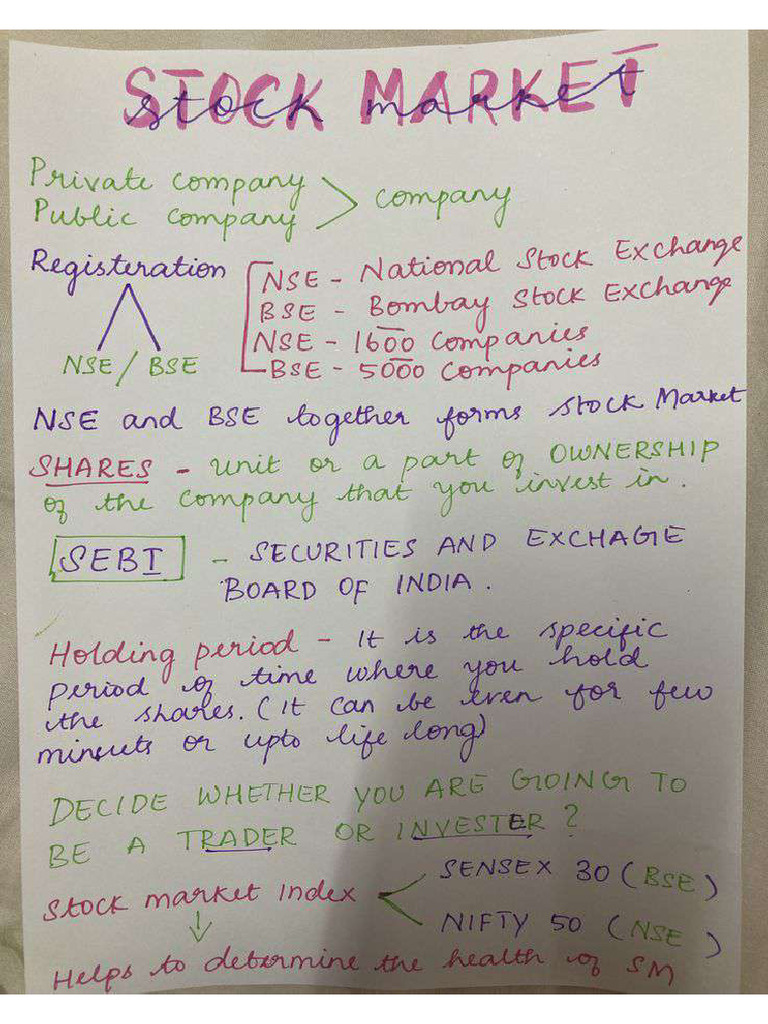 STOCK MARKET
stock market
Private company
Public company
company
Registeration
NSE / BSE
NSE - National Stock Exchange
BSE - Bombay Stock Exchange
NSE - 1600 Companies
BSE - 5000 Companies
NSE and BSE together forms Stock Market
SHARES - unit or a part of OWNERSHIP
of the company that you invest in.
SEBI - SECURITIES AND EXCHAGE
BOARD OF INDIA.
Holding period - It is the specific
period of time where you hold
the shares. (It can be even for few
minsuts or upto life long)
DECIDE WHETHER YOU ARE GOING TO
BE A TRADER OR INVESTER ?
Stock market Index
SENSEX 30 (BSE)
NIFTY 50 (NSE)
Helps to determine the health of SM